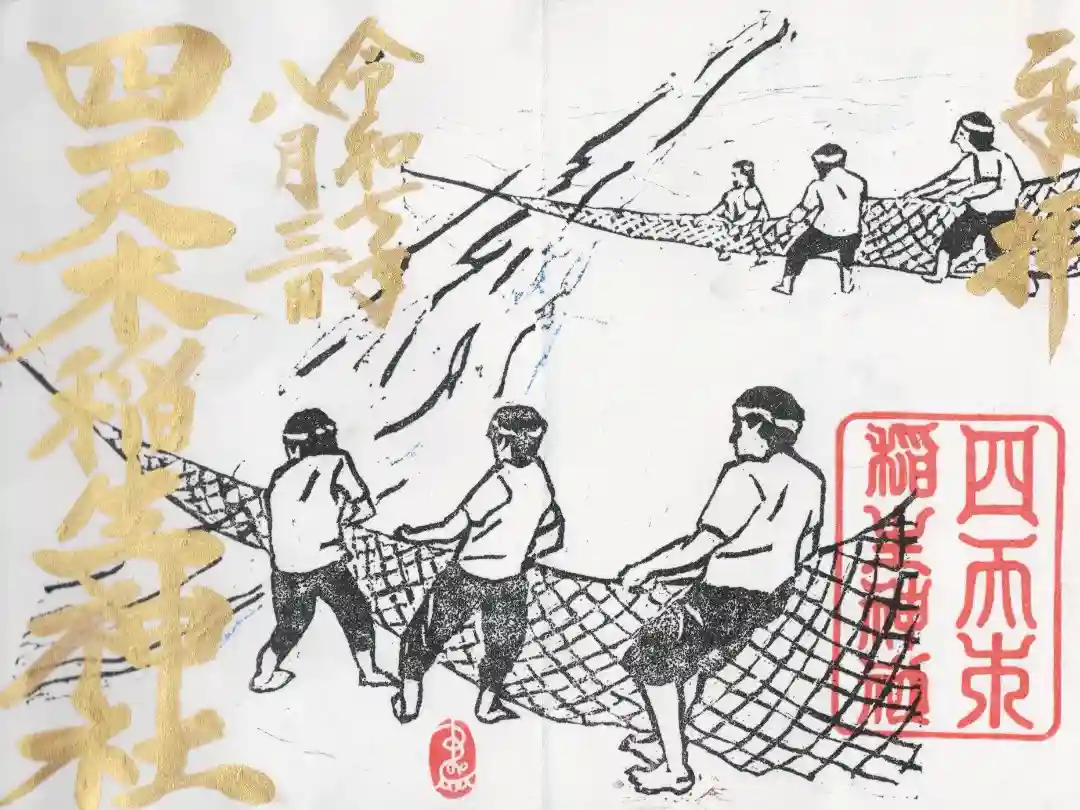 奉拝
四天木
稲生神社
令和
八月三日
四天木稲生神社